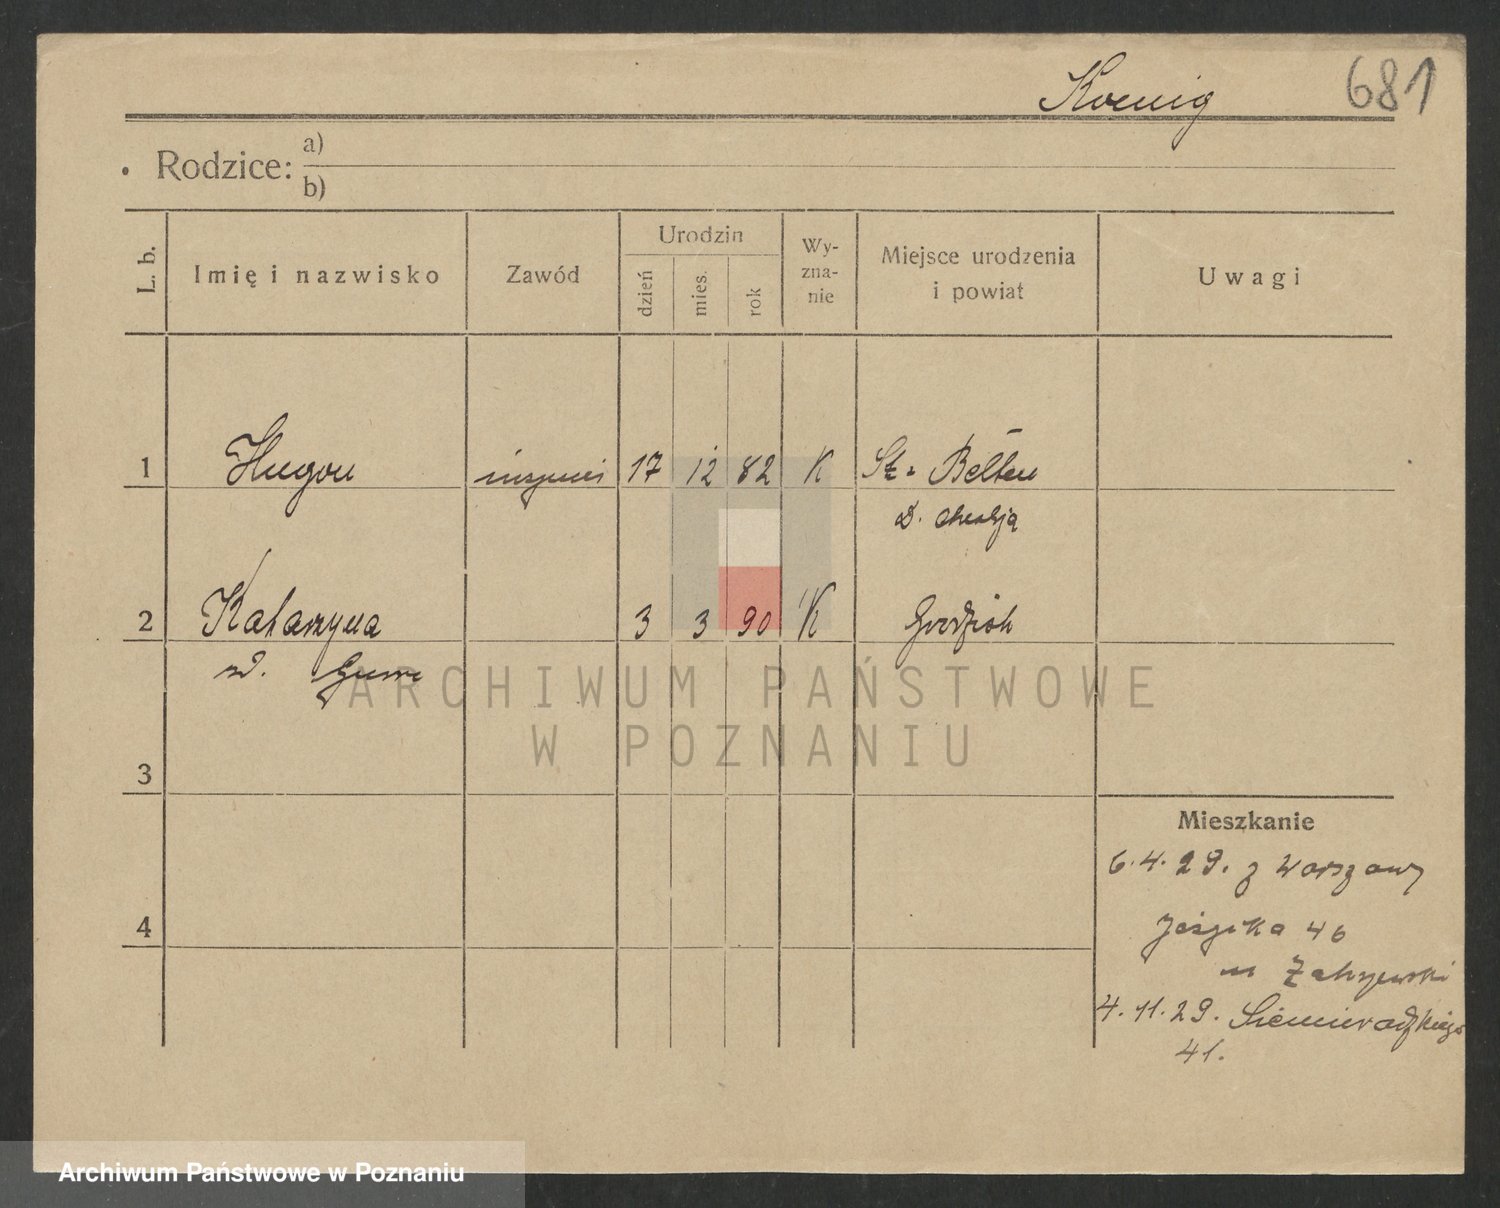 Koenig
681
Rodzice: a)
b)
L. b.
Imię i nazwisko
Zawód
Urodzin
dzień
mies.
rok
Wy-
zna-
nie
Miejsce urodzenia
i powiat
Uwagi
1 Hugon 17 12 82 K St. Bélten
2 Katarzyna 3 3 90 K Grodzisk
3
4
Mieszkanie
6.4.29. z Warszawy
46
m Zakrzewski
4.11.29. Siemieradzkiego
41.
ARCHIWUM PAŃSTWOWE
W POZNANIU
Archiwum Państwowe w Poznaniu